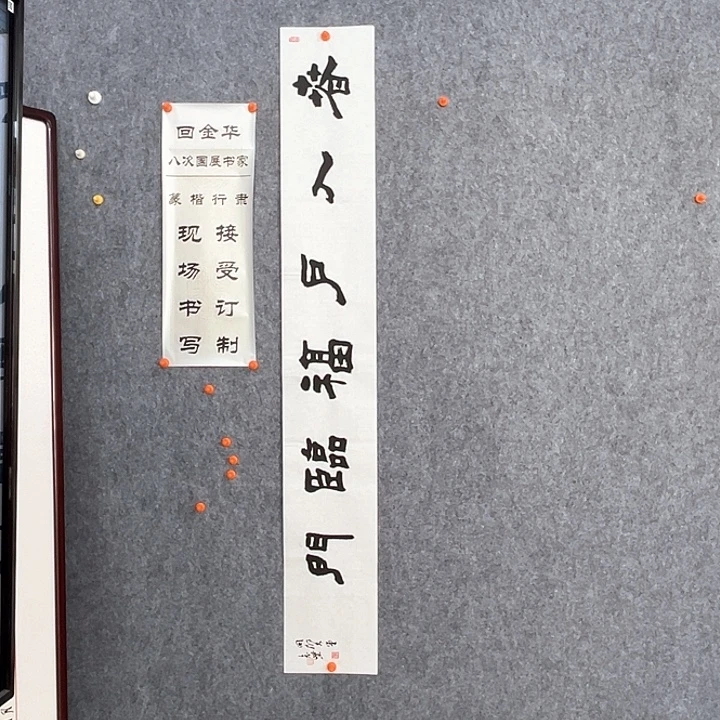 回金华
八次国展书家
篆楷行隶
现场书写
接受订制
春入戶福臨門